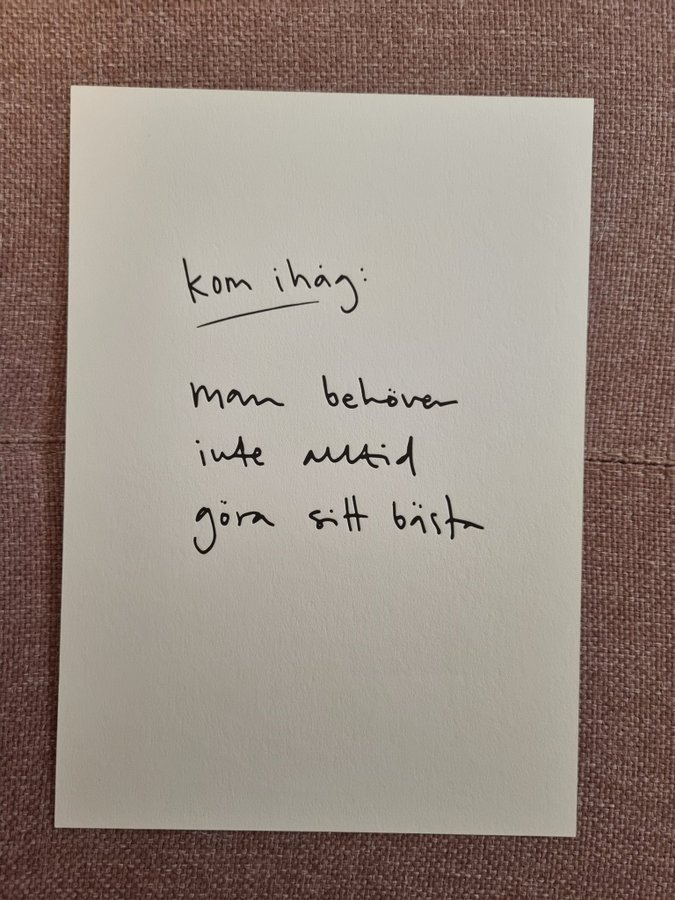 kom ihåg:
man behöver
inte alltid
göra sitt bästa